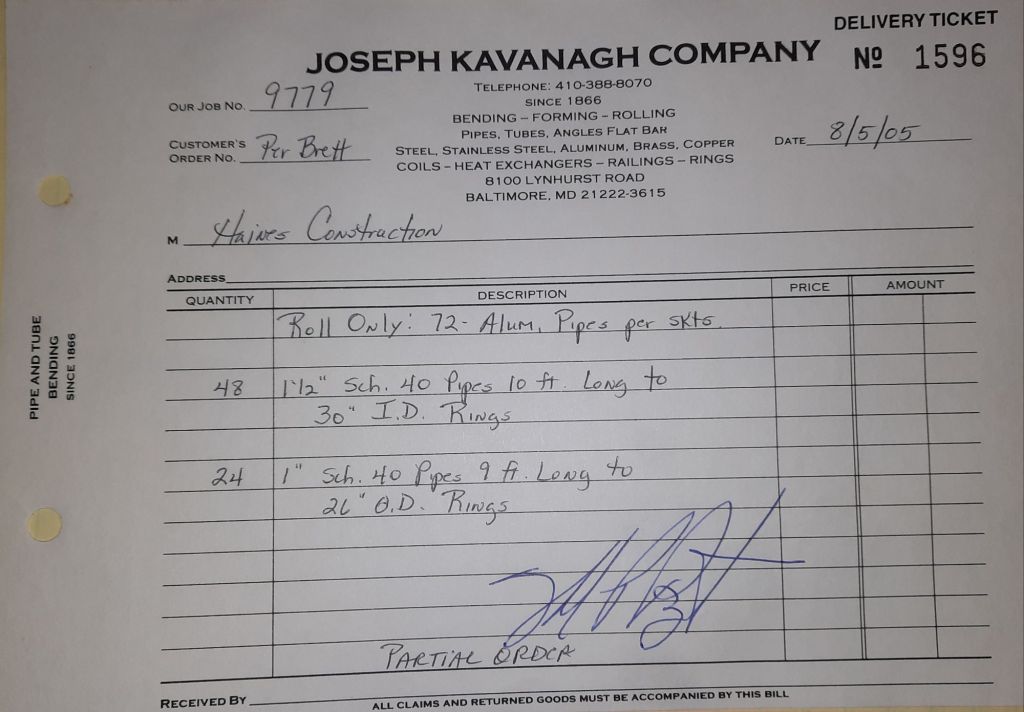 DELIVERY TICKET
JOSEPH KAVANAGH COMPANY
Nº 1596
TELEPHONE: 410-388-8070
SINCE 1866
BENDING – FORMING – ROLLING
PIPES, TUBES, ANGLES FLAT BAR
STEEL, STAINLESS STEEL, ALUMINUM, BRASS, COPPER
COILS – HEAT EXCHANGERS – RAILINGS – RINGS
8100 LYNHURST ROAD
BALTIMORE, MD 21222-3615
OUR JOB NO. 9779
CUSTOMER'S
ORDER NO. Per Brett
DATE 8/5/05
M Haines Construction
ADDRESS
QUANTITY DESCRIPTION PRICE AMOUNT
Roll Only: 72- Alum. Pipes per skts.
48 1 1/2" Sch. 40 Pipes 10 ft. Long to
30" I.D. Rings
24 1" Sch. 40 Pipes 9 ft. Long to
O.D. Rings
PARTIAL ORDER
RECEIVED BY
ALL CLAIMS AND RETURNED GOODS MUST BE ACCOMPANIED BY THIS BILL
PIPE AND TUBE
BENDING
SINCE 1866